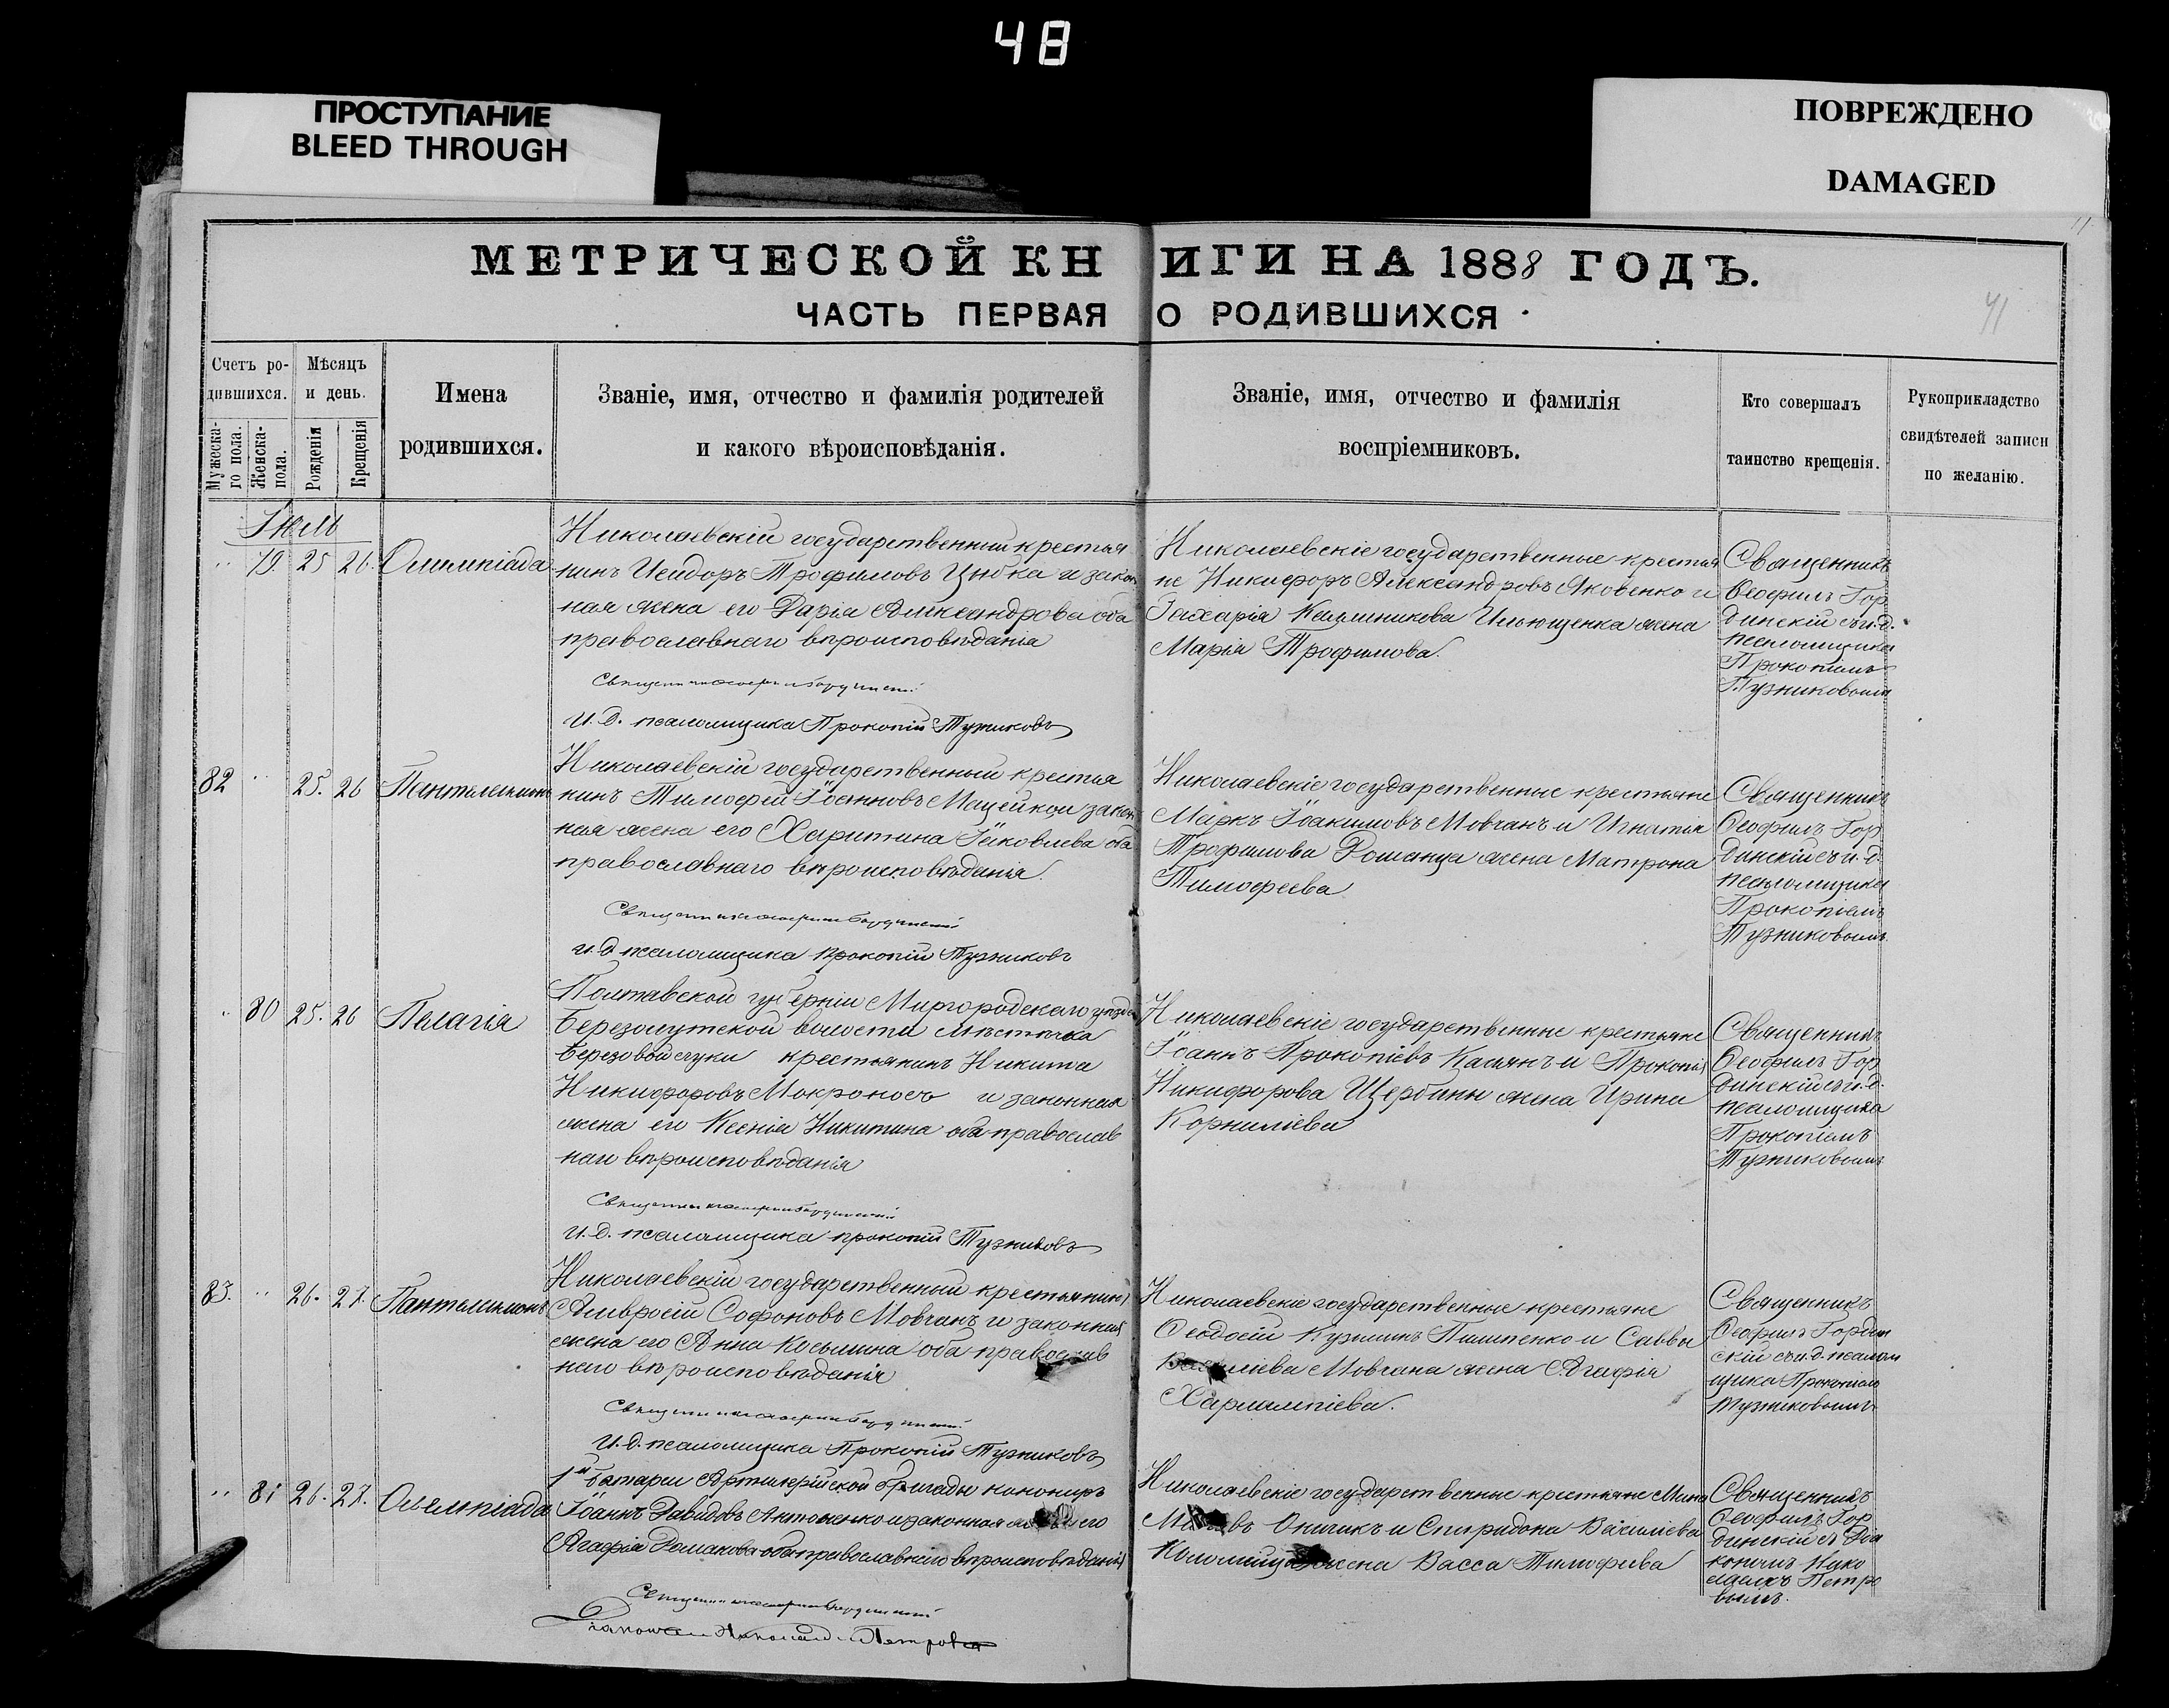 48
ПРОСТУПАНИЕ
BLEED THROUGH
ПОВРЕЖДЕНО
DAMAGED
МЕТРИЧЕСКОЙ КНИГИ НА 1888 ГОДЪ.
ЧАСТЬ ПЕРВАЯ О РОДИВШИХСЯ
41
Счетъ ро-
дившихся.
Мѣсяцъ
и день.
Имена
родившихся.
Званіе, имя, отчество и фамилія родителей
и какого вѣроисповѣданія.
Званіе, имя, отчество и фамилія
воспріемниковъ.
Кто совершалъ
таинство крещенія.
Рукоприкладство
свидѣтелей записи
по желанію.
Мужеска-
го пола.
Женска-
пола.
Рожденія
Крещенія
Іюль
" 79. 25 26. Олимпіада
Николаевскій государственный крестья
нинъ Исидоръ Трофимовъ Цыбка и закон
ная жена его Дарія Александрова оба
православнаго вѣроисповѣданія
И. д. псаломщика Прокопій Тузниковъ
Николаевскіе государственные крестья
не Никифоръ Александровъ Яковенко и
Захарія Ильющенка жена
Марія Трофимова.
Священникъ
Ѳеофилъ Гор
динскій съ и. д.
псаломщика
Прокопіемъ
Тузниковымъ
82 " 25. 26 Пантелеимонъ
Николаевскій государственный крестья
нинъ Тимофей Іоанновъ Мацейко и закон
ная жена его Харитина Іаковлева оба
православнаго вѣроисповѣданія.
и. д. псаломщика Прокопій Тузниковъ
Николаевскіе государственные крестьяне
Маркъ Іоакимовъ Мовчанъ и Игнатія
Трофимова Романца жена Матрона
Тимофеева
Священникъ
Ѳеофилъ Гор
динскій съ и. д.
псаломщика
Прокопіемъ
Тузниковымъ
" 80 25. 26 Пелагія
Полтавской губерніи Миргородскаго уѣзда
Березолутской волости мѣстечка
Березовойлуки крестьянинъ Никита
Никифоровъ Мокроносъ и законная
жена его Ксенія Никитина оба православ
наго вѣроисповѣданія
И. д. псаломщика Прокопій Тузниковъ
Николаевскіе государственные крестьяне
Іоаннъ Прокопіевъ Касянъ и Прокопія
Никифорова Щербины жена Ирина
Корниліева
Священникъ
Ѳеофилъ Гор
динскій съ и. д.
псаломщика
Прокопіемъ
Тузниковымъ
83. " 26. 27. Пантелеимонъ
Николаевскій государственный крестьянинъ
Амвросій Софоновъ Мовчанъ и законная
жена его Анна Косьмина оба православ
наго вѣроисповѣданія
И. д. псаломщика Прокопій Тузниковъ
Николаевскіе государственные крестьяне
Ѳеодосій Кузминъ Пилипенко и Саввы
Василіева Мовчана жена Агафія
Харлампіева.
Священникъ
Ѳеофилъ Гордин
скій съ и. д. псалом
щика Прокопіемъ
Тузниковымъ
" 81 26. 27. Олимпіада
1й батареи Артилерійской бригады канониръ
Іоаннъ Давидовъ Антоненко и законная жена его
Агафія Романова оба православнаго вѣроисповѣданія
Діаконъ Николай Петровъ
Николаевскіе государственные крестьяне Мина
Онищикъ и Спиридона Василіева
Коломийца жена Васса Тимофеева
Священникъ
Ѳеофилъ Гор
динскій съ Діа
кономъ Нико
лаемъ Петро
вымъ.